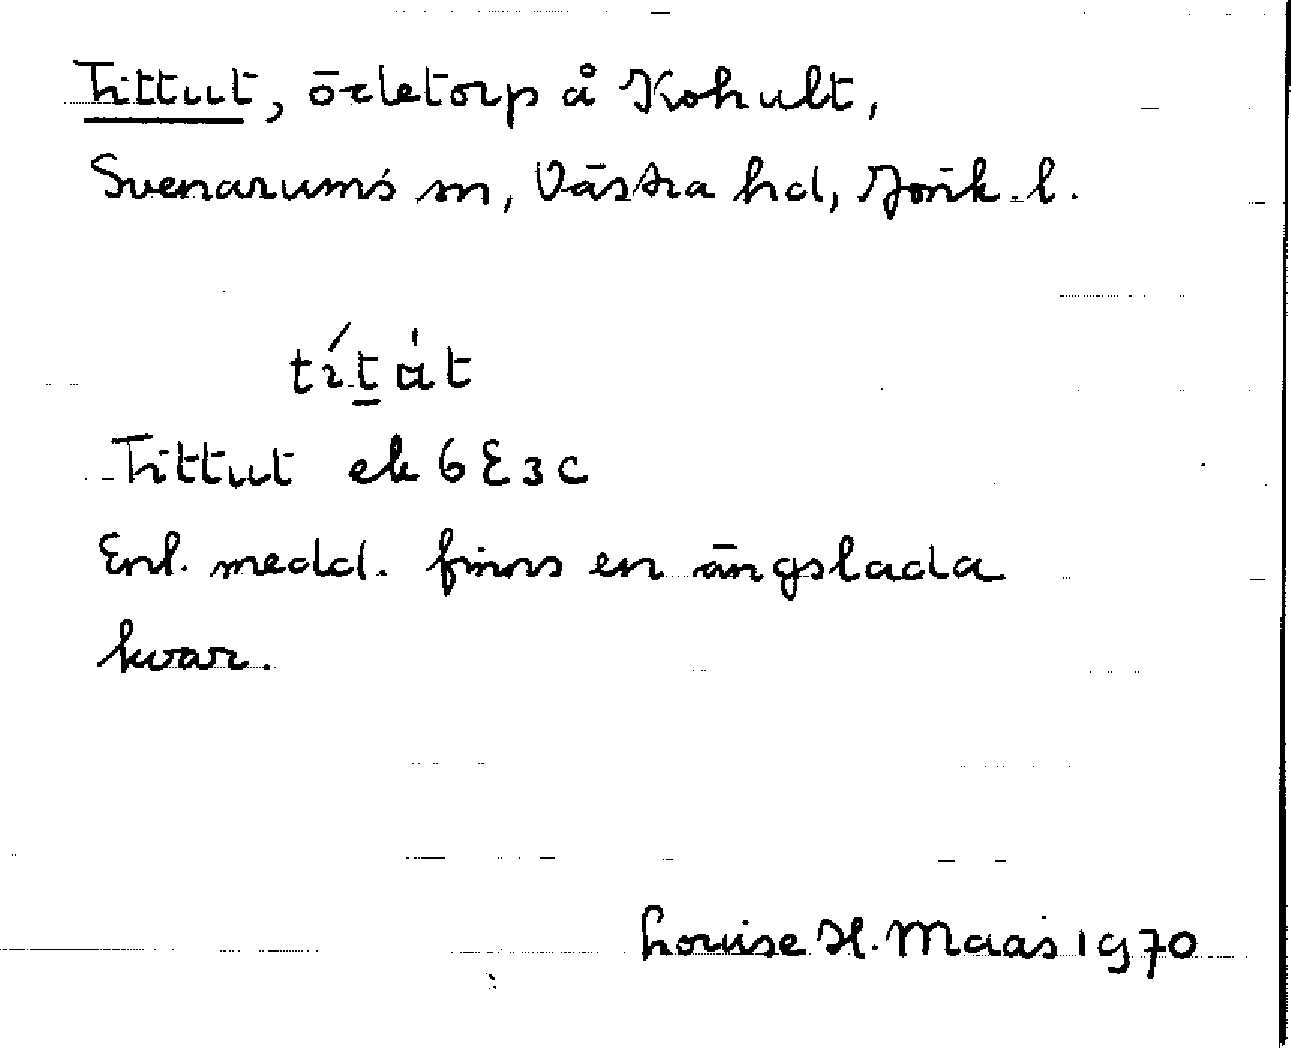 Tittut, ödetorp å Kohult,
Svenarums sn, Västra hd, Jönk. l.
títu̇t
Tittut ek 6E3c
Enl. medd. finns en ängslada
kvar.
Louise H. Maas 1970